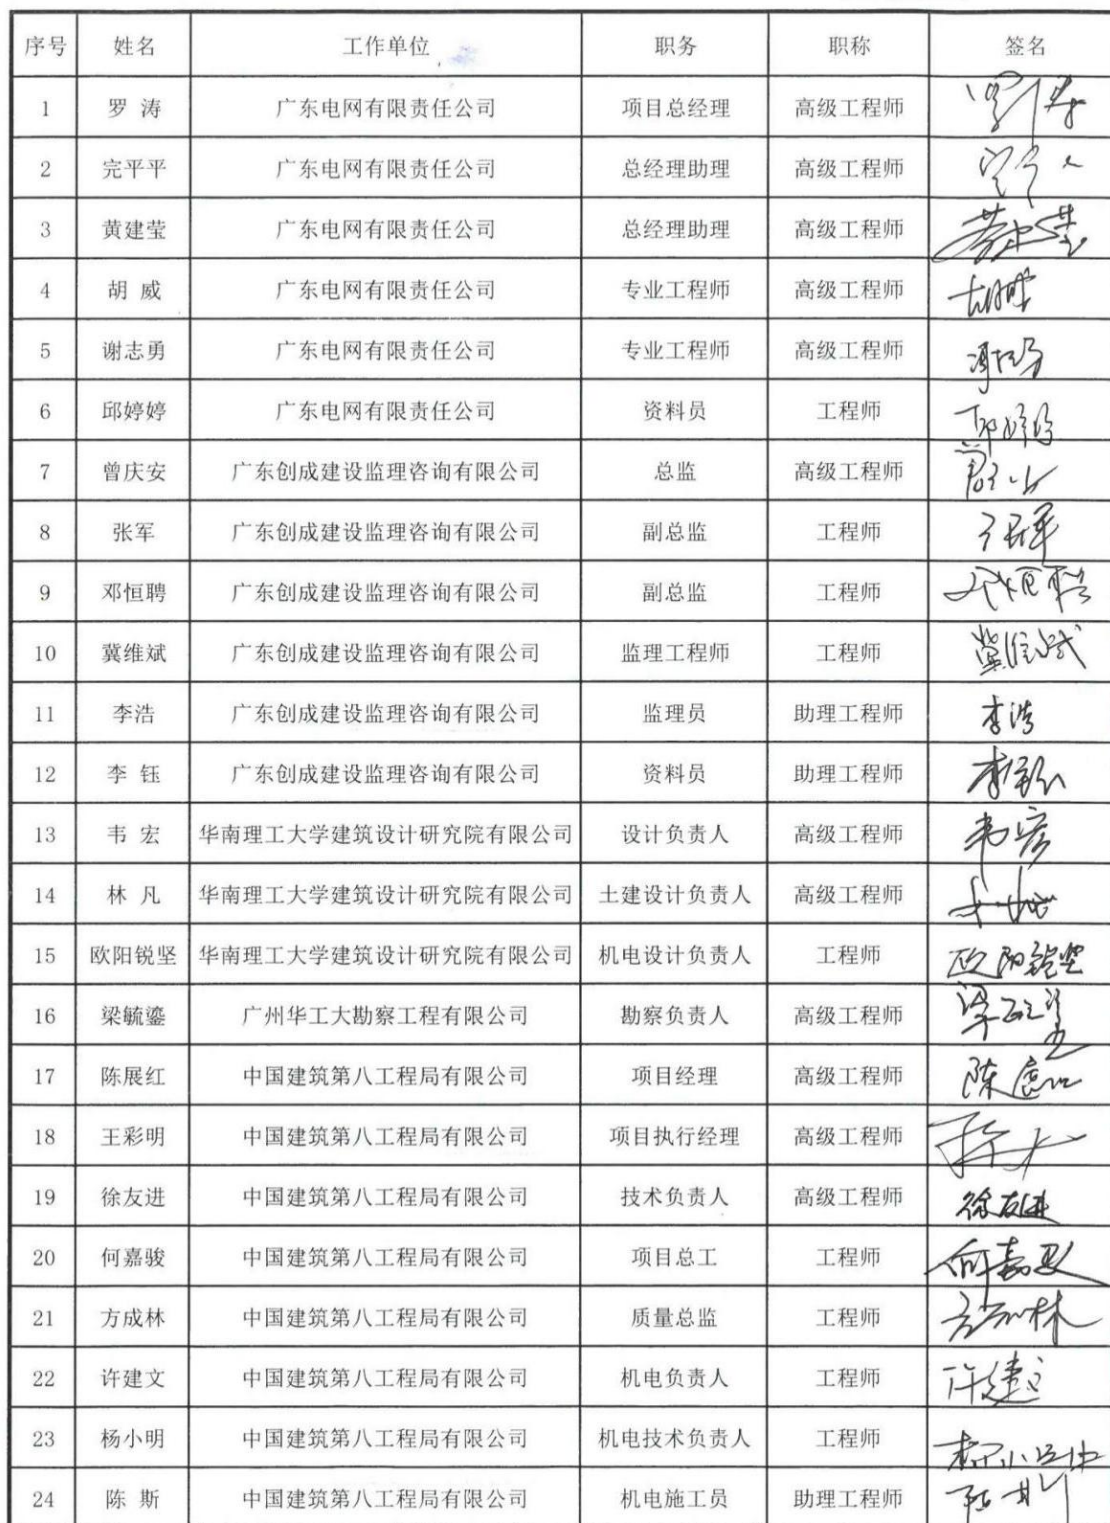 序号 姓名 工作单位 职务 职称 签名
1 罗 涛 广东电网有限责任公司 项目总经理 高级工程师
2 完平平 广东电网有限责任公司 总经理助理 高级工程师
3 黄建莹 广东电网有限责任公司 总经理助理 高级工程师
4 胡 威 广东电网有限责任公司 专业工程师 高级工程师
5 谢志勇 广东电网有限责任公司 专业工程师 高级工程师
6 邱婷婷 广东电网有限责任公司 资料员 工程师
7 曾庆安 广东创成建设监理咨询有限公司 总监 高级工程师
8 张军 广东创成建设监理咨询有限公司 副总监 工程师
9 邓恒聘 广东创成建设监理咨询有限公司 副总监 工程师
10 冀维斌 广东创成建设监理咨询有限公司 监理工程师 工程师
11 李浩 广东创成建设监理咨询有限公司 监理员 助理工程师 李浩
12 李 钰 广东创成建设监理咨询有限公司 资料员 助理工程师
13 韦 宏 华南理工大学建筑设计研究院有限公司 设计负责人 高级工程师
14 林 凡 华南理工大学建筑设计研究院有限公司 土建设计负责人 高级工程师
15 欧阳锐坚 华南理工大学建筑设计研究院有限公司 机电设计负责人 工程师 欧阳锐坚
16 梁毓鎏 广州华工大勘察工程有限公司 勘察负责人 高级工程师
17 陈展红 中国建筑第八工程局有限公司 项目经理 高级工程师
18 王彩明 中国建筑第八工程局有限公司 项目执行经理 高级工程师
19 徐友进 中国建筑第八工程局有限公司 技术负责人 高级工程师 徐友进
20 何嘉骏 中国建筑第八工程局有限公司 项目总工 工程师
21 方成林 中国建筑第八工程局有限公司 质量总监 工程师
22 许建文 中国建筑第八工程局有限公司 机电负责人 工程师
23 杨小明 中国建筑第八工程局有限公司 机电技术负责人 工程师
24 陈 斯 中国建筑第八工程局有限公司 机电施工员 助理工程师